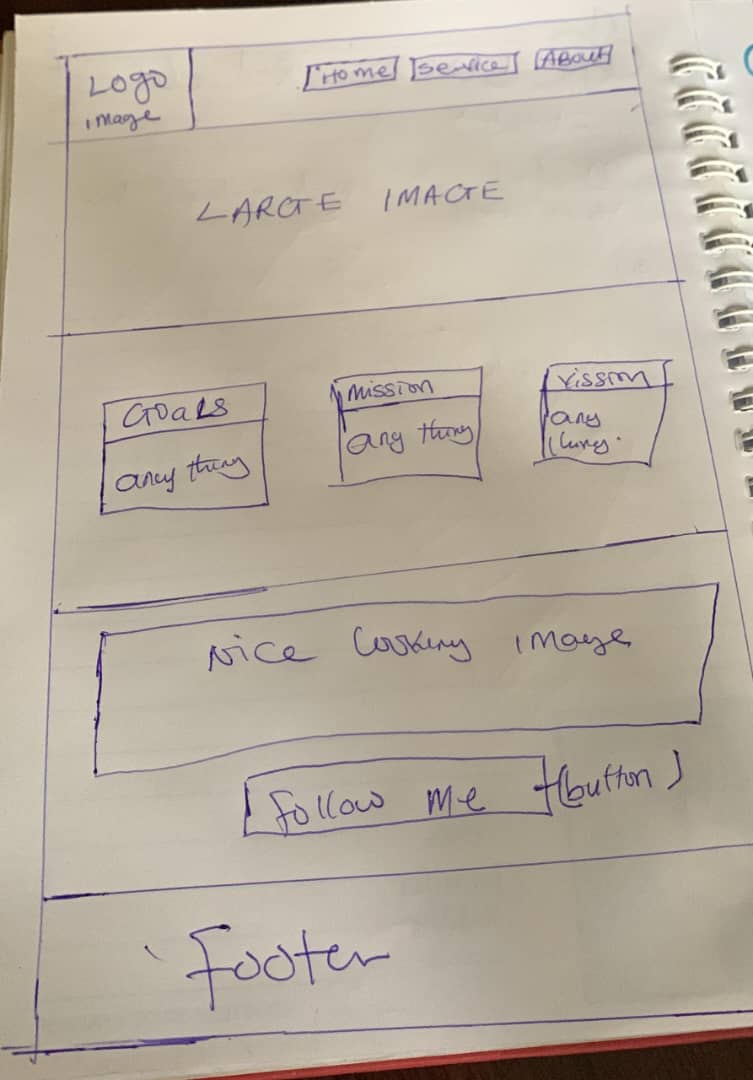 Logo
image
Home
Service
About
LARGE IMAGE
Goals
any thing
mission
any thing
vission
any
thing.
Nice looking image
Follow me (button)
Footer